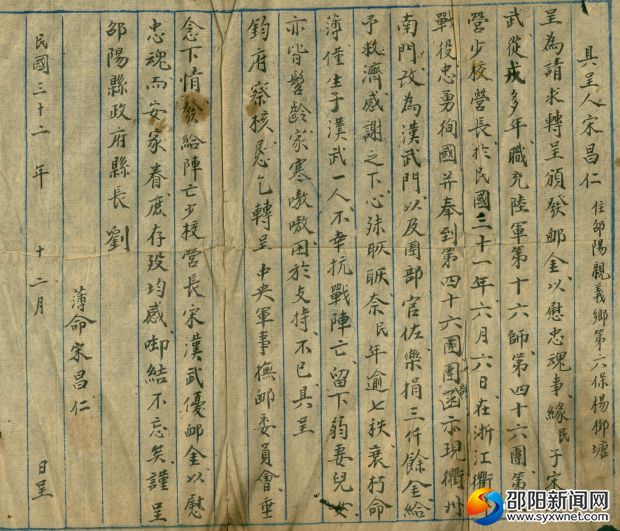 具呈人宋昌仁 住邵陽親義鄉第六保楊柳塘
呈為請求轉呈頒發卹金以慰忠魂事緣民子宋漢
武從戎多年職充陸軍第十六師第四十六團第
營少校營長於民國三十一年六月六日在浙江衢
戰役忠勇殉國并奉到第四十六團團部函示現衢州
南門改為漢武門以及團部官佐樂捐三仟餘金給
予救濟感謝之下心殊耿耿奈民年逾七秩衰朽命
薄僅生子漢武一人不幸抗戰陣亡留下弱妻兒女
亦皆髫齡家寒嗷嗷困於支持不已具呈
鈞府察核懇乞轉呈 中央軍事撫卹委員會垂
念下情發給陣亡少校營長宋漢武優卹金以慰
忠魂而安家眷庶存歿均感啣結不忘矣謹呈
邵陽縣政府縣長 劉
薄命宋昌仁
民國三十二年 十二月 日呈
邵阳新闻网
www.syxwnet.com